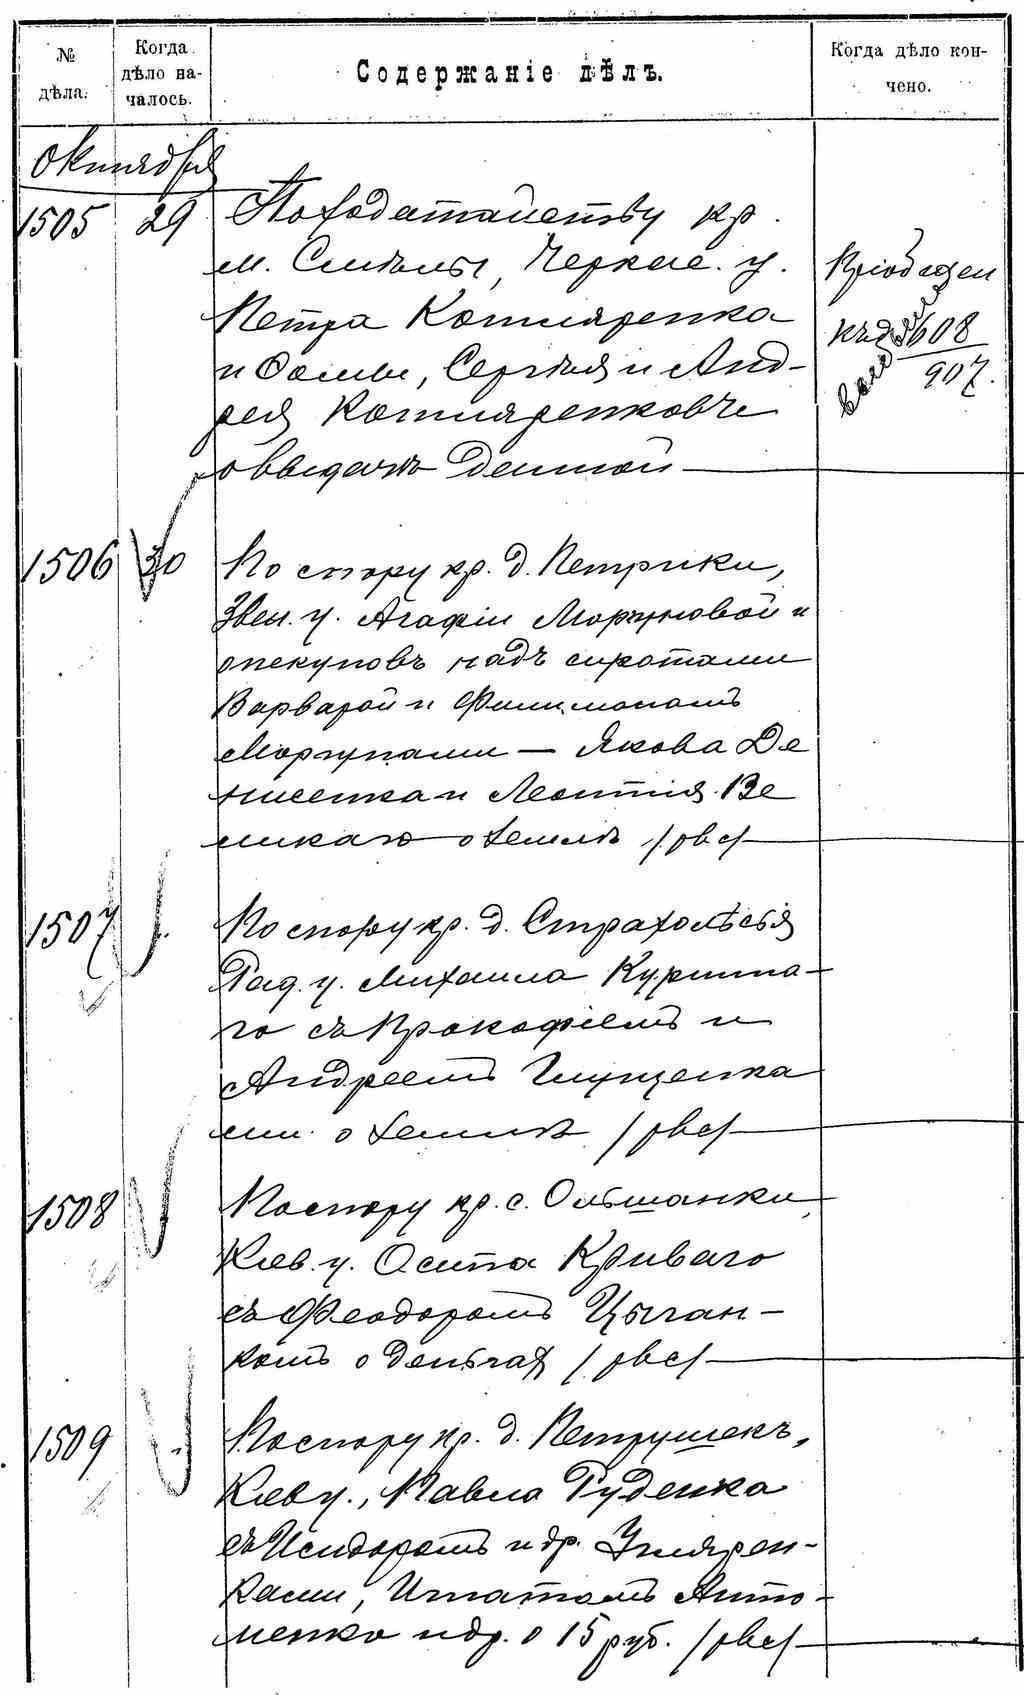 № дѣла.
Когда дѣло началось.
Содержаніе дѣлъ.
Когда дѣло кончено.
Октября
1505 29 По ходатайству кр.
м. Смѣлы, Черкас. у.
Петра Котляренка
и Фомы, Сергѣя и Анд-
рея Котляренковъ
о выдачѣ данной
Пріобщен
къ д. 608
907.
1506 30 По спору кр. д. Петрики,
Звен. у. Агафіи Моргуновой и
опекуновъ надъ сиротами
Варварой и Филимономъ
Моргунами — Якова Де
нисенка и Леонтія Ве
ликаго о землѣ /рвс/
1507 По спору кр. д. Страхолѣсья
Рад. у. Михаила Куринна-
го съ Прокофіемъ и
Андреемъ Глущенка
ми о землѣ /рвс/
1508 По спору кр. с. Ольшанки,
Кіев. у. Осипа Криваго
съ Феодоромъ Цыган-
комъ о деньгах /рвс/
1509 По спору кр. д. Петрушекъ,
Кіев у., Павла Руденка
съ Исидоромъ и др.
ками, Игнатомъ Анто-
ненко и др. о 15 руб. /рвс/